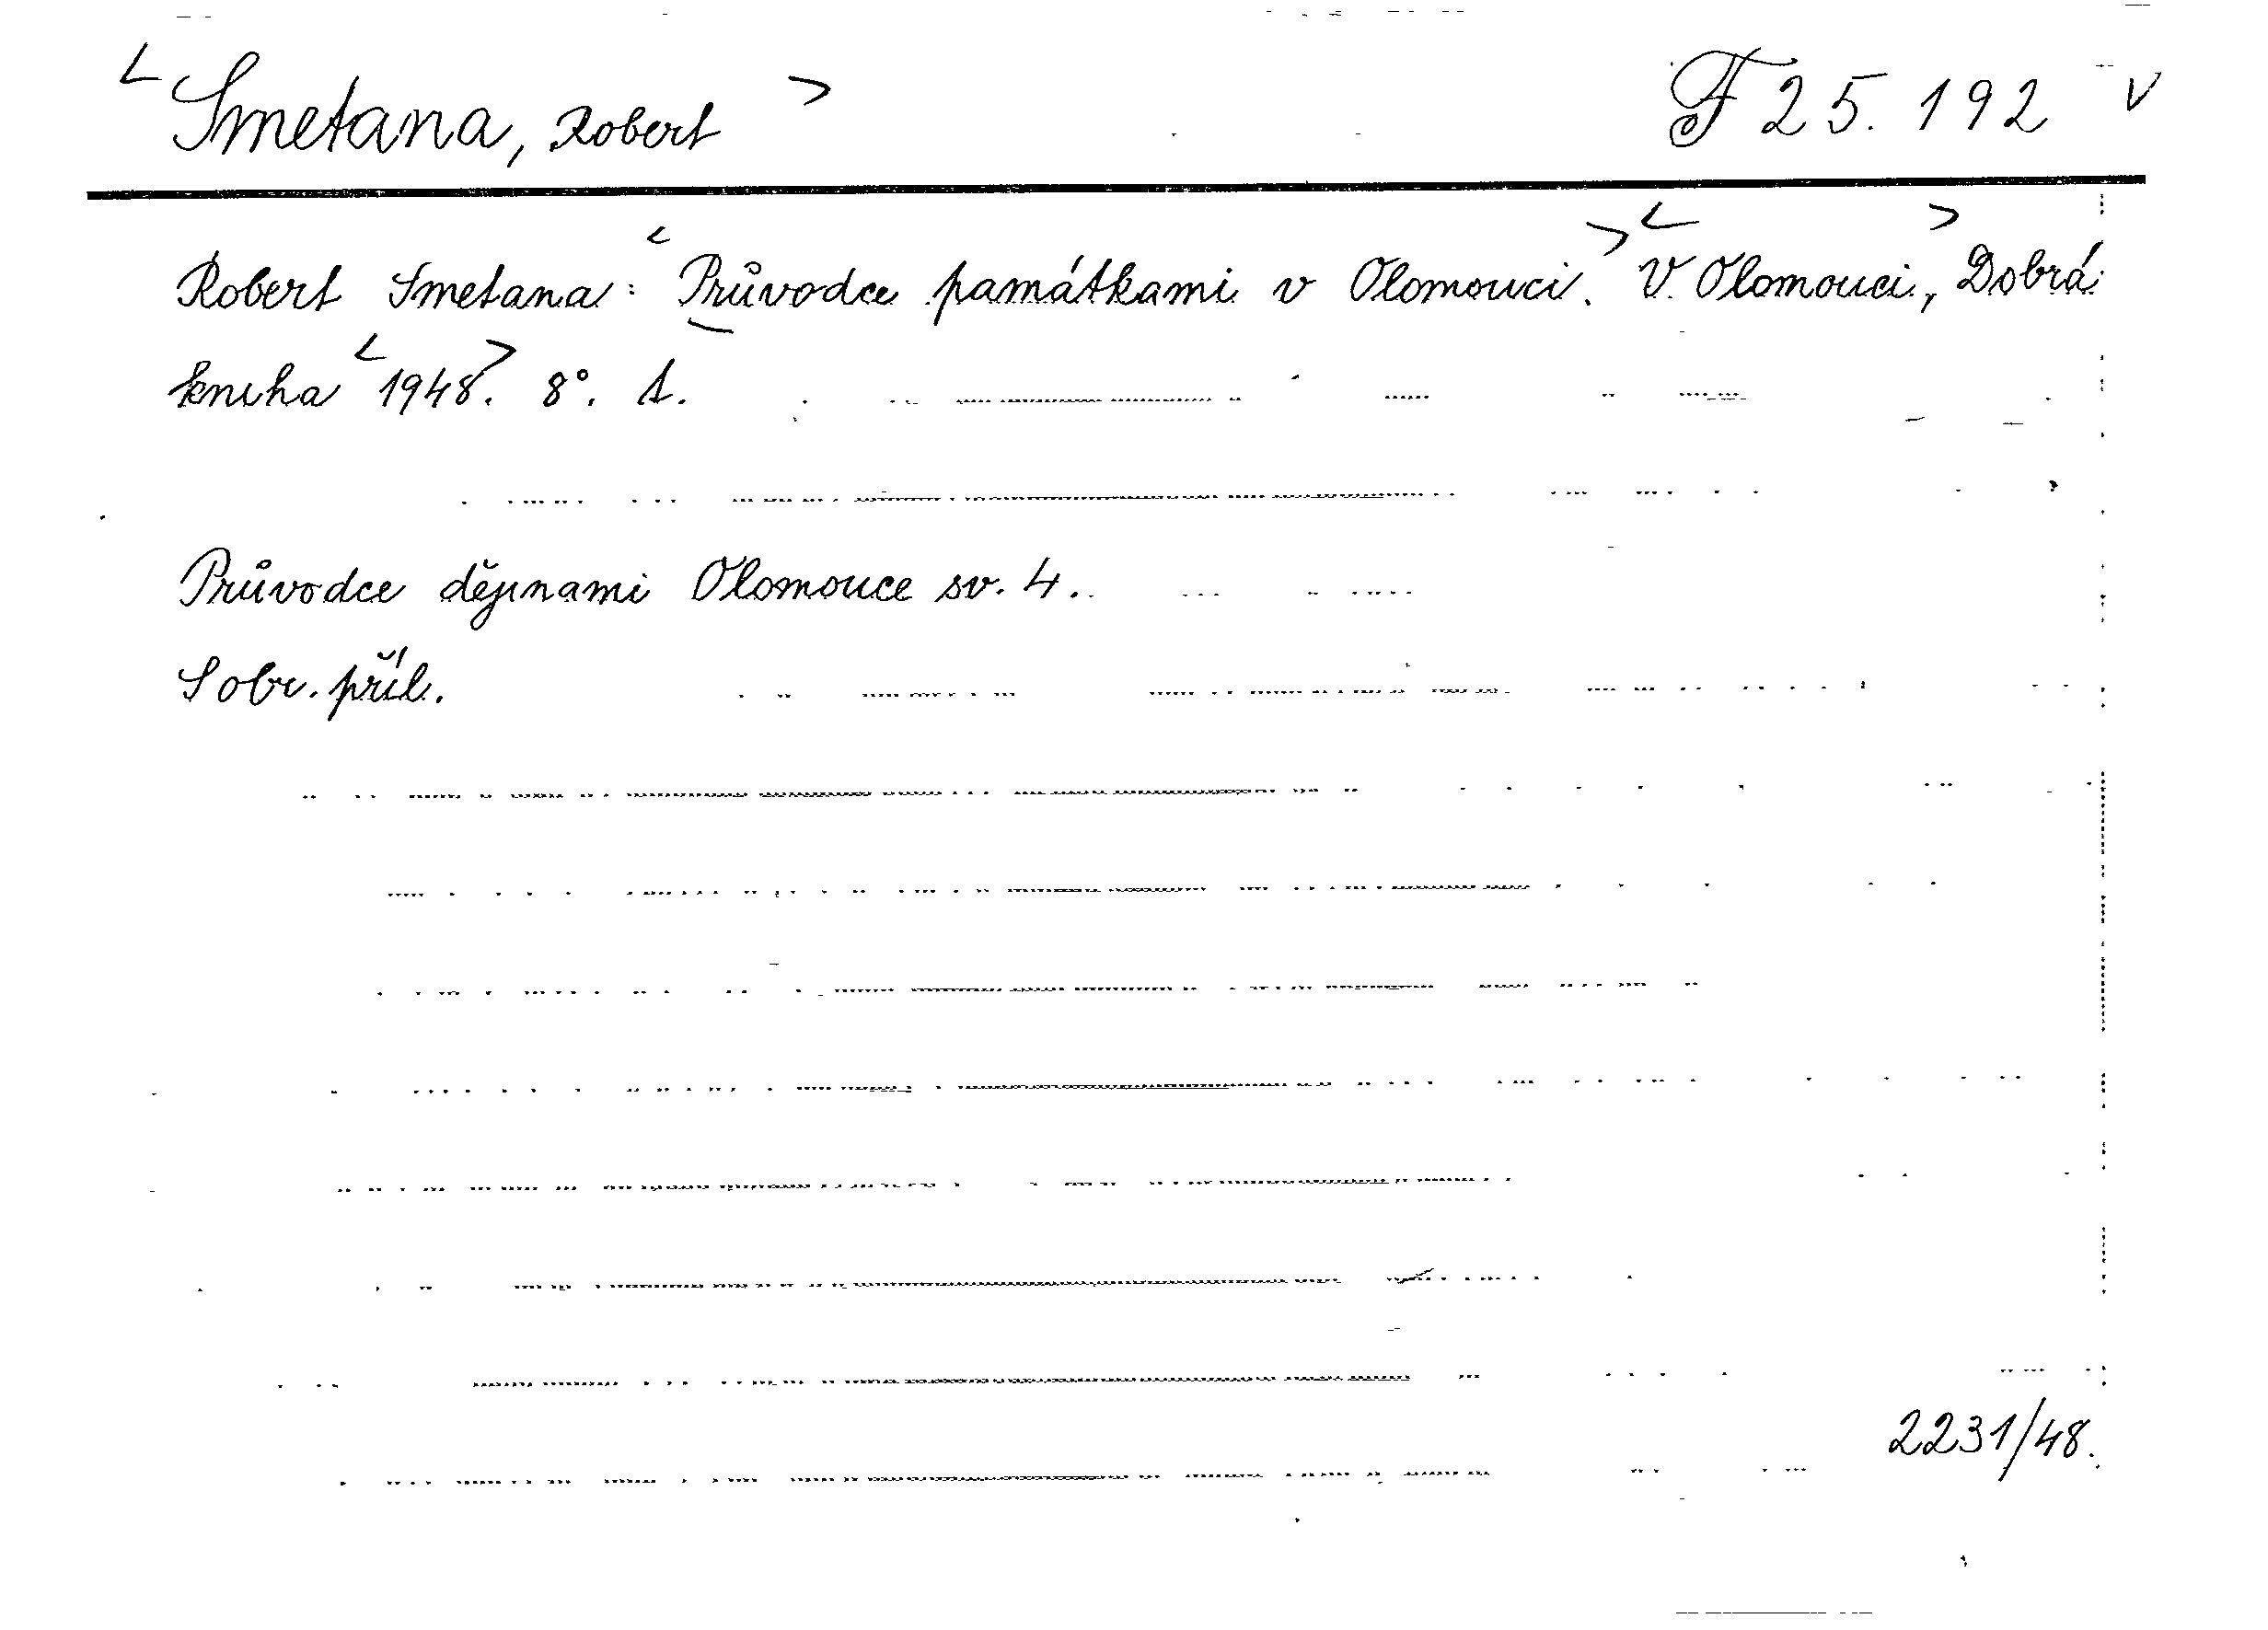 <Smetana, Robert> F 25.192 v
Robert Smetana: <Průvodce památkami v Olomouci.> <V Olomouci,> Dobrá
kniha <1948>. 8°. 1.
Průvodce dějinami Olomouce sv. 4.
S obr. příl.
2231/48.